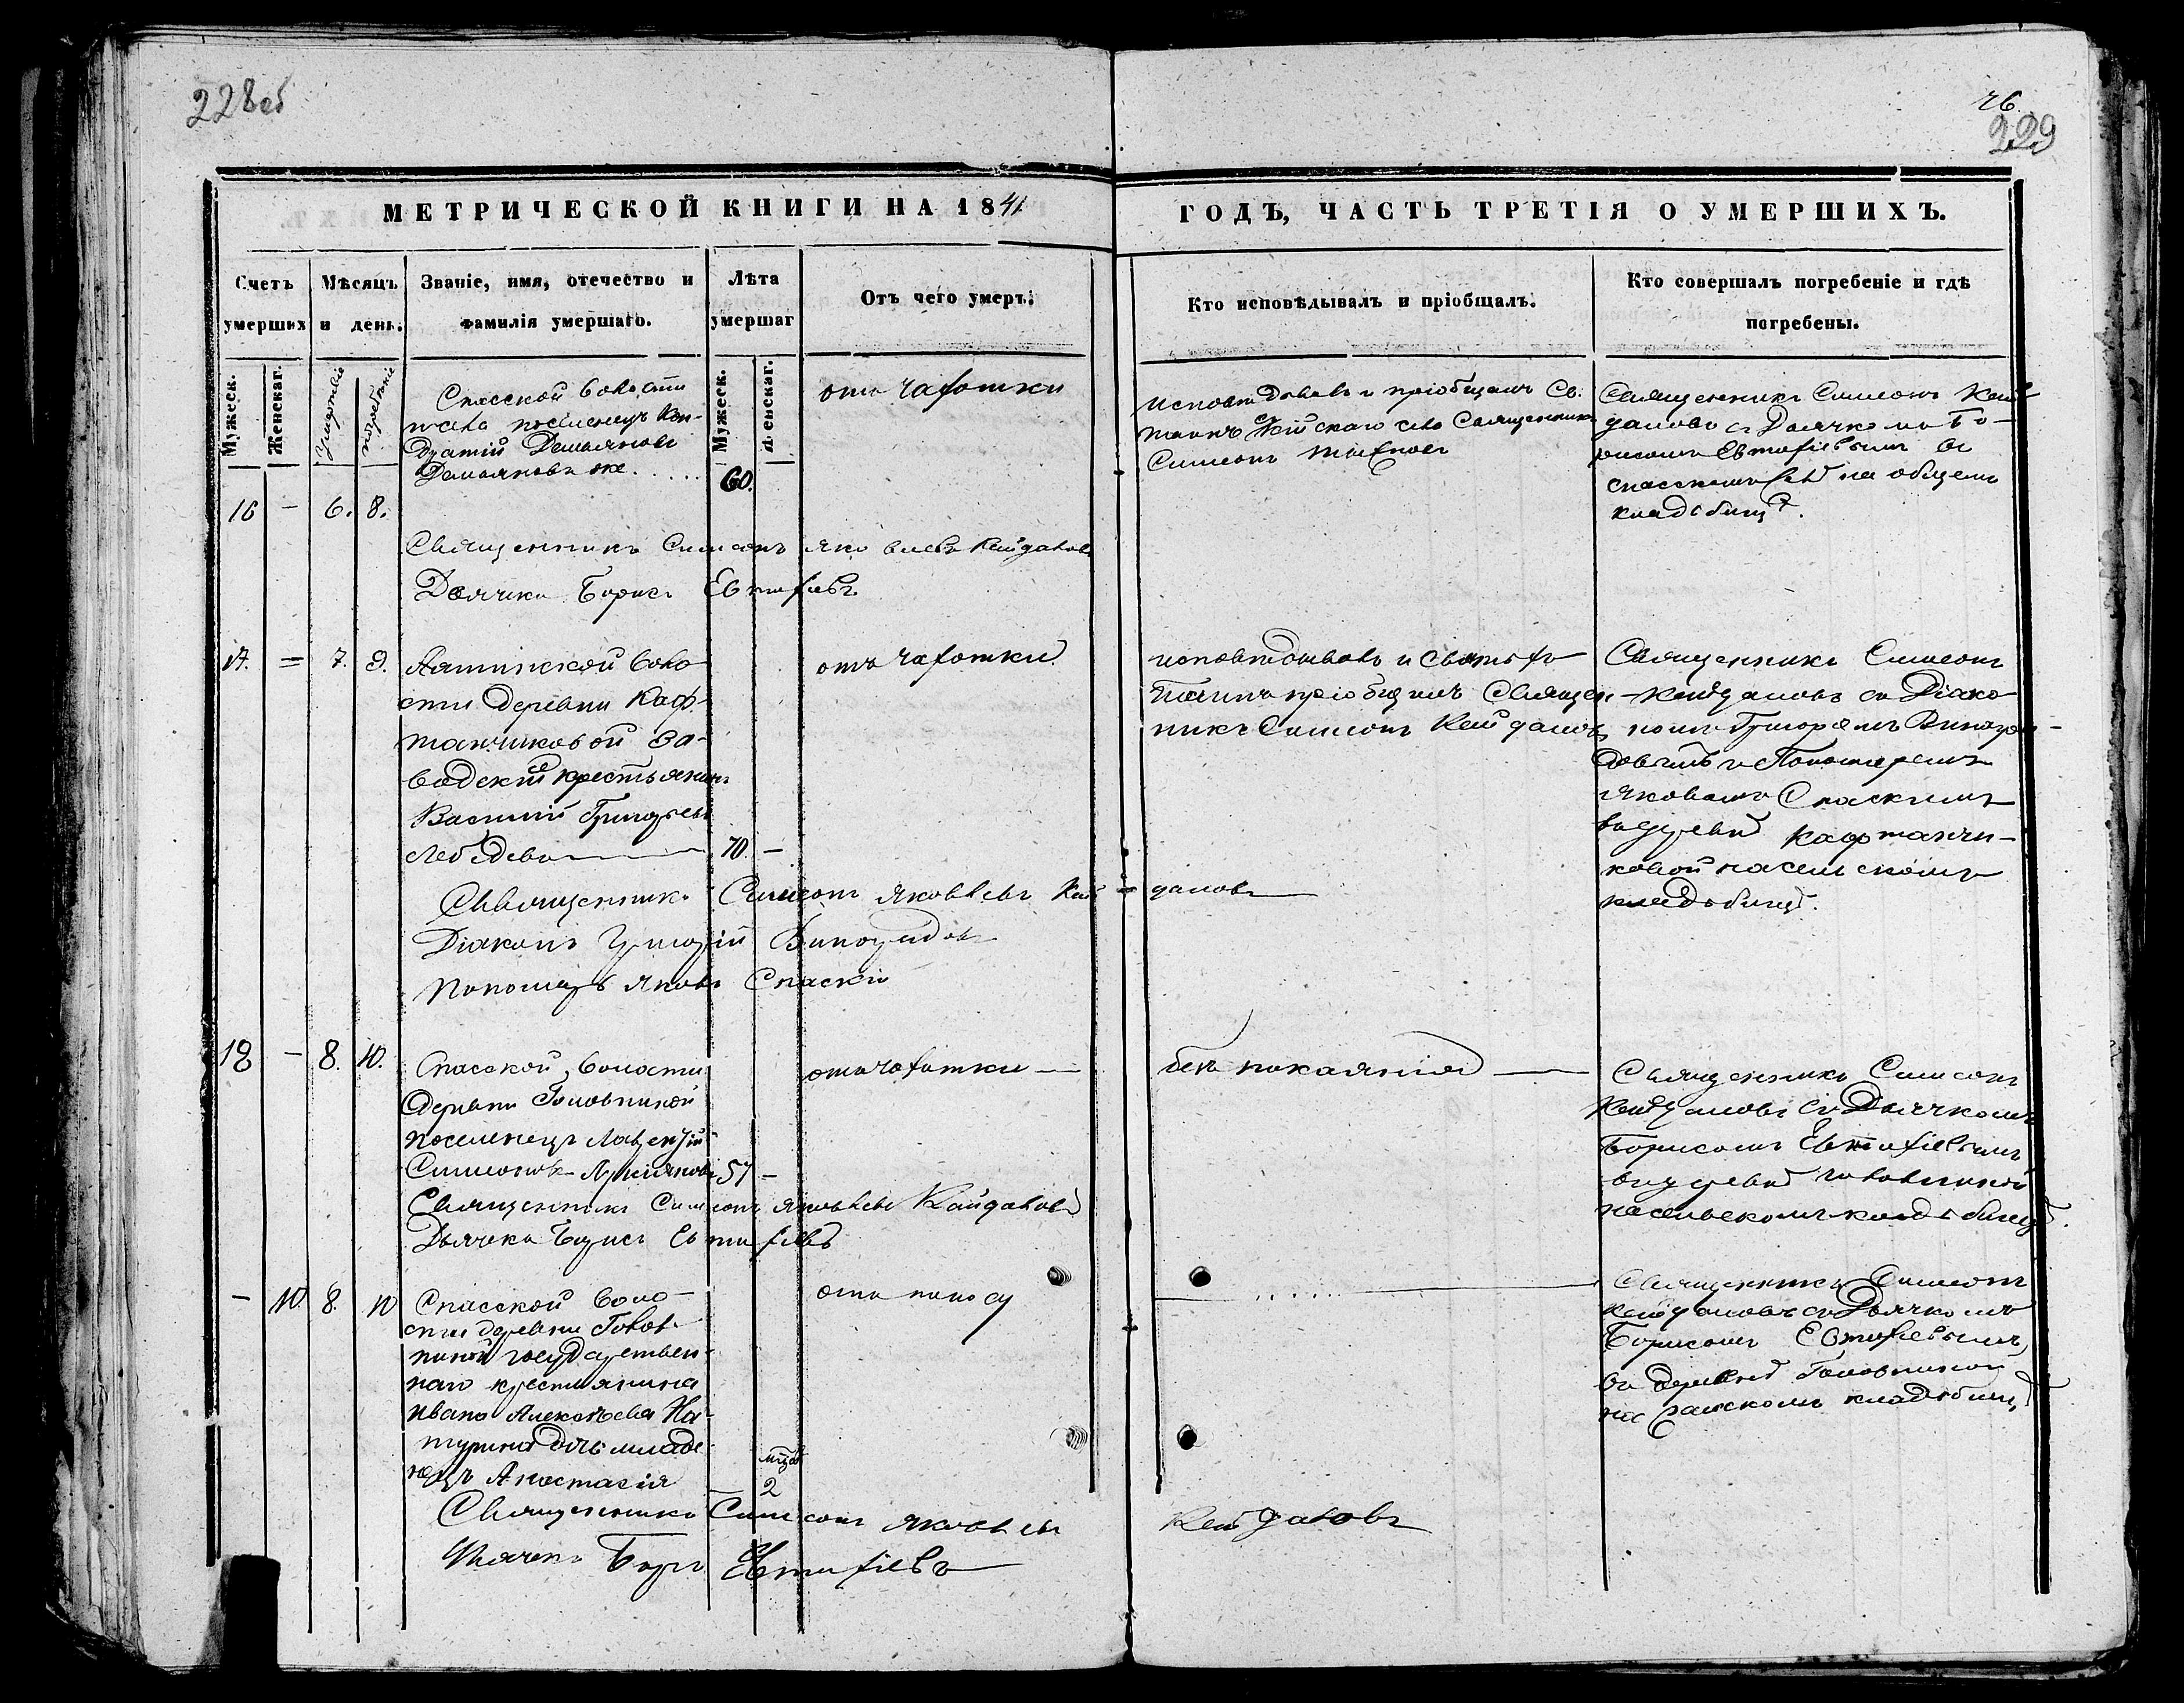 228об
76
229
МЕТРИЧЕСКОЙ КНИГИ НА 1841
ГОДЪ, ЧАСТЬ ТРЕТІЯ О УМЕРШИХЪ.
Счетъ умерших
Мѣсяцъ и день.
Званіе, имя, отечество и фамилія умершаго.
Лѣта умершаг
Отъ чего умеръ:
Кто исповѣдывалъ и пріобщалъ.
Кто совершалъ погребеніе и гдѣ погребены.
Мужеск.
Женскаг.
Мужеск.
Женскаг.
16 - 6. 8.
Спасской волости
поселенецъ Кон-
дратій Демьяновъ
Демьяновъ же.....
60.
отъ чахотки
исповѣдовалъ и пріобщалъ Св.
таинъ
Священникъ
Симеонъ
Священникъ Симеонъ Кай
дановъ съ Дьячкомъ Бо-
рисомъ Евтифіевымъ въ
спасскомъ на общемъ
кладбищѣ.
Священникъ Симеонъ Яковлевъ Кайдановъ
Дьячекъ Борисъ Евтифіевъ
17. = 7. 9.
волости
деревни Каф-
танчиковой За-
водскій крестьянинъ
Василій Григорьевъ
Лебедевъ
70. -
отъ чахотки
исповѣдывалъ и святыхъ
Таинъ пріобщалъ Священ-
никъ Симеонъ Кайдановъ
Священникъ Симеонъ
Кайдановъ съ Діако-
номъ Григорьемъ Виногра-
довымъ и Пономаремъ
Яковомъ Спаскимъ
въ деревнѣ Кафтанчи-
ковой на сельскомъ
кладбищѣ.
Священникъ Симеонъ Яковлевъ Кайдановъ
Діаконъ Григорій Виноградовъ
Пономарь Яковъ Спаскій
18 - 8. 10.
Спасской волости
деревни Головниной
поселенецъ
Симеоновъ
57 -
отъ чахотки
безъ покаянія
Священникъ Симеонъ
Кайдановъ съ Дьячкомъ
Борисомъ Евтифіевымъ
въ деревнѣ Головниной
на сельскомъ кладбищѣ.
Священникъ Симеонъ Яковлевъ Кайдановъ
Дьячекъ Борисъ Евтифіевъ
- 10. 8. 10
Спасской воло-
сти деревни Голов-
ниной государствен-
наго крестьянина
Ивана Алексѣева
дочь младе-
нецъ Анастасія
2
отъ поносу
Священникъ Симеонъ
Кайдановъ съ Дьячкомъ
Борисомъ Евтифіевымъ,
въ деревнѣ Головниной
на сельскомъ кладбищѣ
Священникъ Симеонъ Яковлевъ Кайдановъ
Дьячекъ Борисъ Евтифіевъ